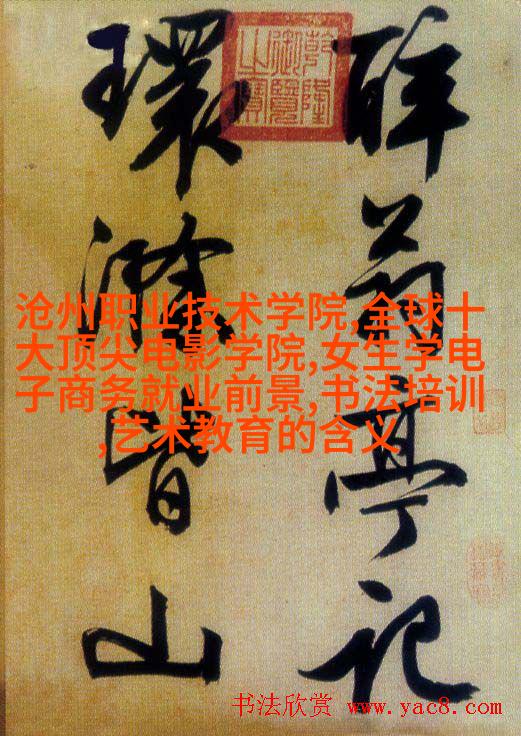 醉翁亭记
環滁皆山
乾隆
御覽
之寶
沧州职业技术学院,全球十
大顶尖电影学院,女生学电
子商务就业前景,书法培训
,艺术教育的含义
书法欣赏 www.yac8.com